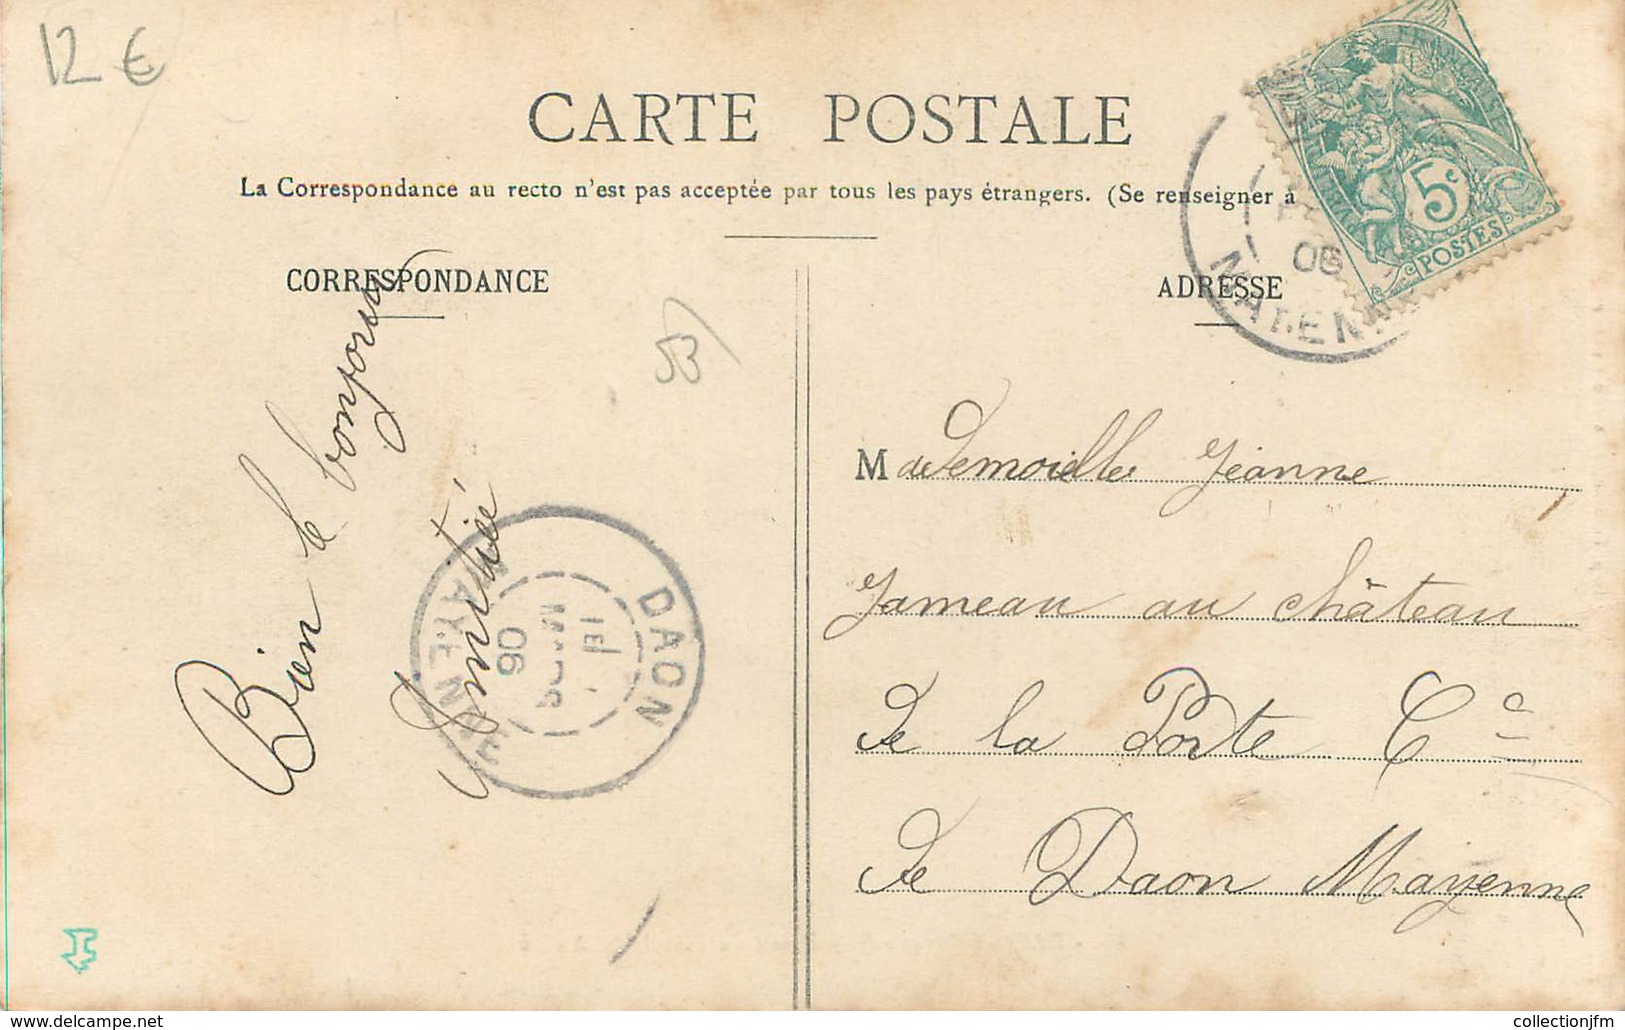 12 €
CARTE POSTALE
La Correspondance au recto n'est pas acceptée par tous les pays étrangers. (Se renseigner à
CORRESPONDANCE
ADRESSE
53
Bien le bonjour
Amitié
DAON
MAYENNE
06
06
MAYENNE
5c
POSTES
Mademoiselle Jeanne
Jameau au château
de la Porte Cne
de Daon Mayenne
https://www.delcampe.net
collectionjfm